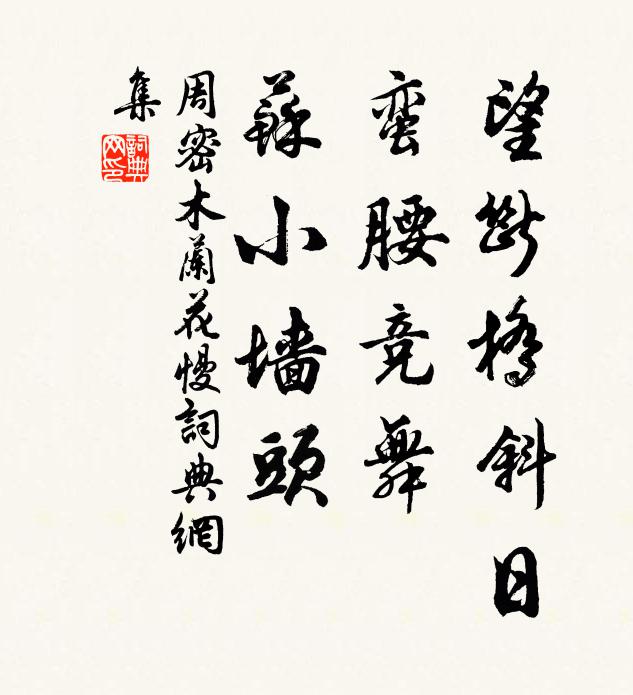 望斷橋斜日
蛮腰竞舞
蘇小墙頭
周密木蘭花慢詞典網
集
詞典
网印